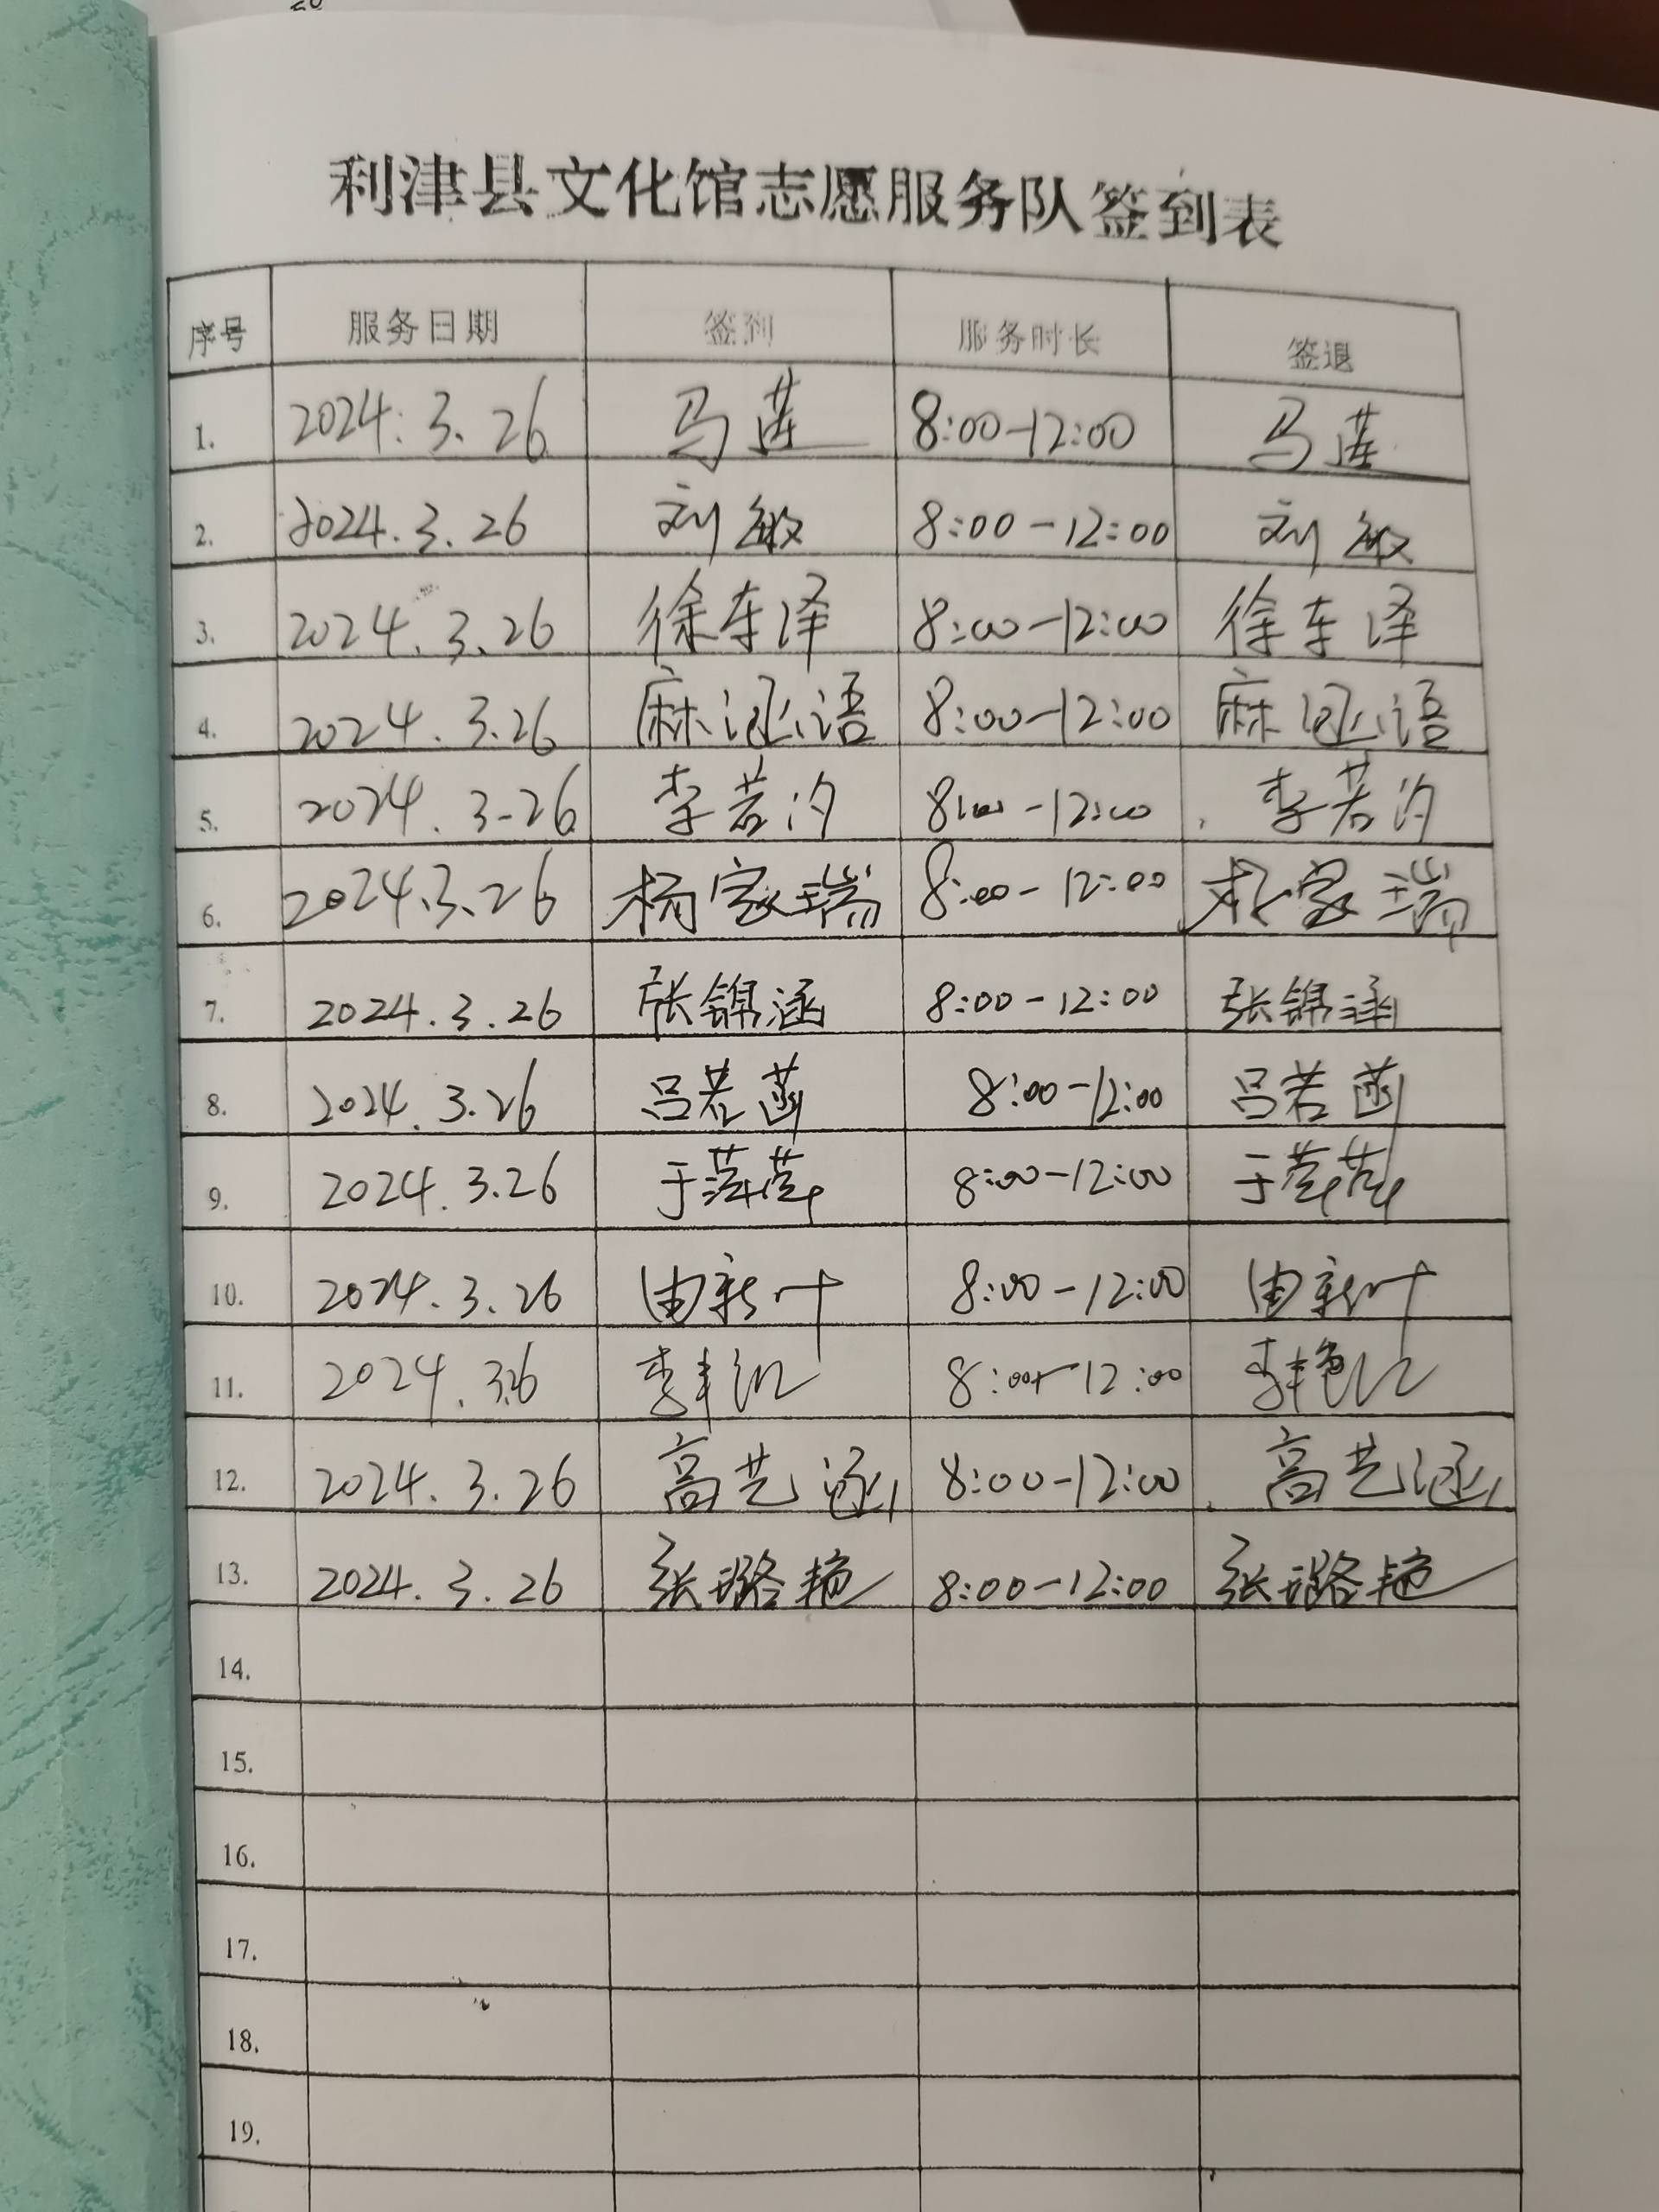 利津县文化馆志愿服务队签到表
序号 服务日期 签到 服务时长 签退
1. 2024.3.26 马莲 8:00-12:00 马莲
2. 2024.3.26 刘敏 8:00-12:00 刘敏
3. 2024.3.26 徐东泽 8:00-12:00 徐东泽
4. 2024.3.26 麻涵语 8:00-12:00 麻涵语
5. 2024.3-26 李若汐 8:00-12:00 李若汐
6. 2024.3.26 杨家瑞 8:00-12:00 杨家瑞
7. 2024.3.26 张锦涵 8:00-12:00 张锦涵
8. 2024.3.26 吕若菡 8:00-12:00 吕若菡
9. 2024.3.26 于萍萍 8:00-12:00 于萍萍
10. 2024.3.26 由新叶 8:00-12:00 由新叶
11. 2024.3.26 李艳红 8:00-12:00 李艳红
12. 2024.3.26 高艺涵 8:00-12:00 高艺涵
13. 2024.3.26 张璐艳 8:00-12:00 张璐艳
14.
15.
16.
17.
18.
19.